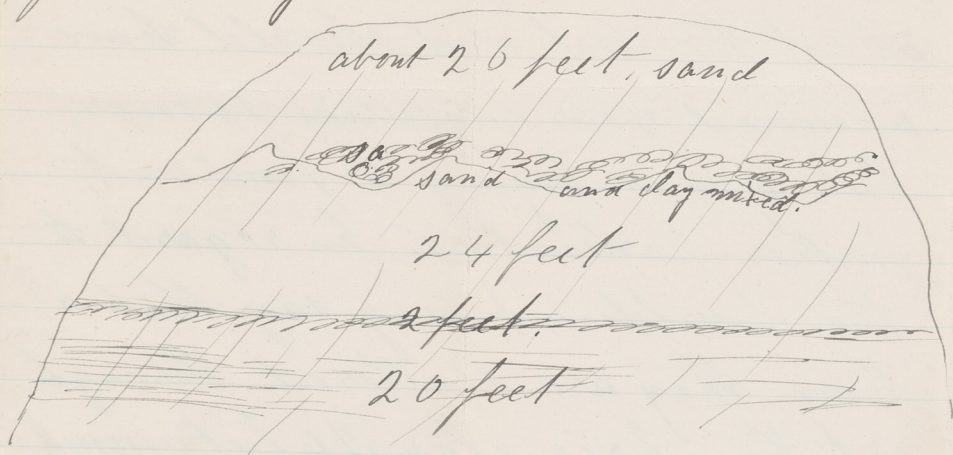 about 26 feet, sand
sand and clay mixed.
24 feet
2 feet.
20 feet